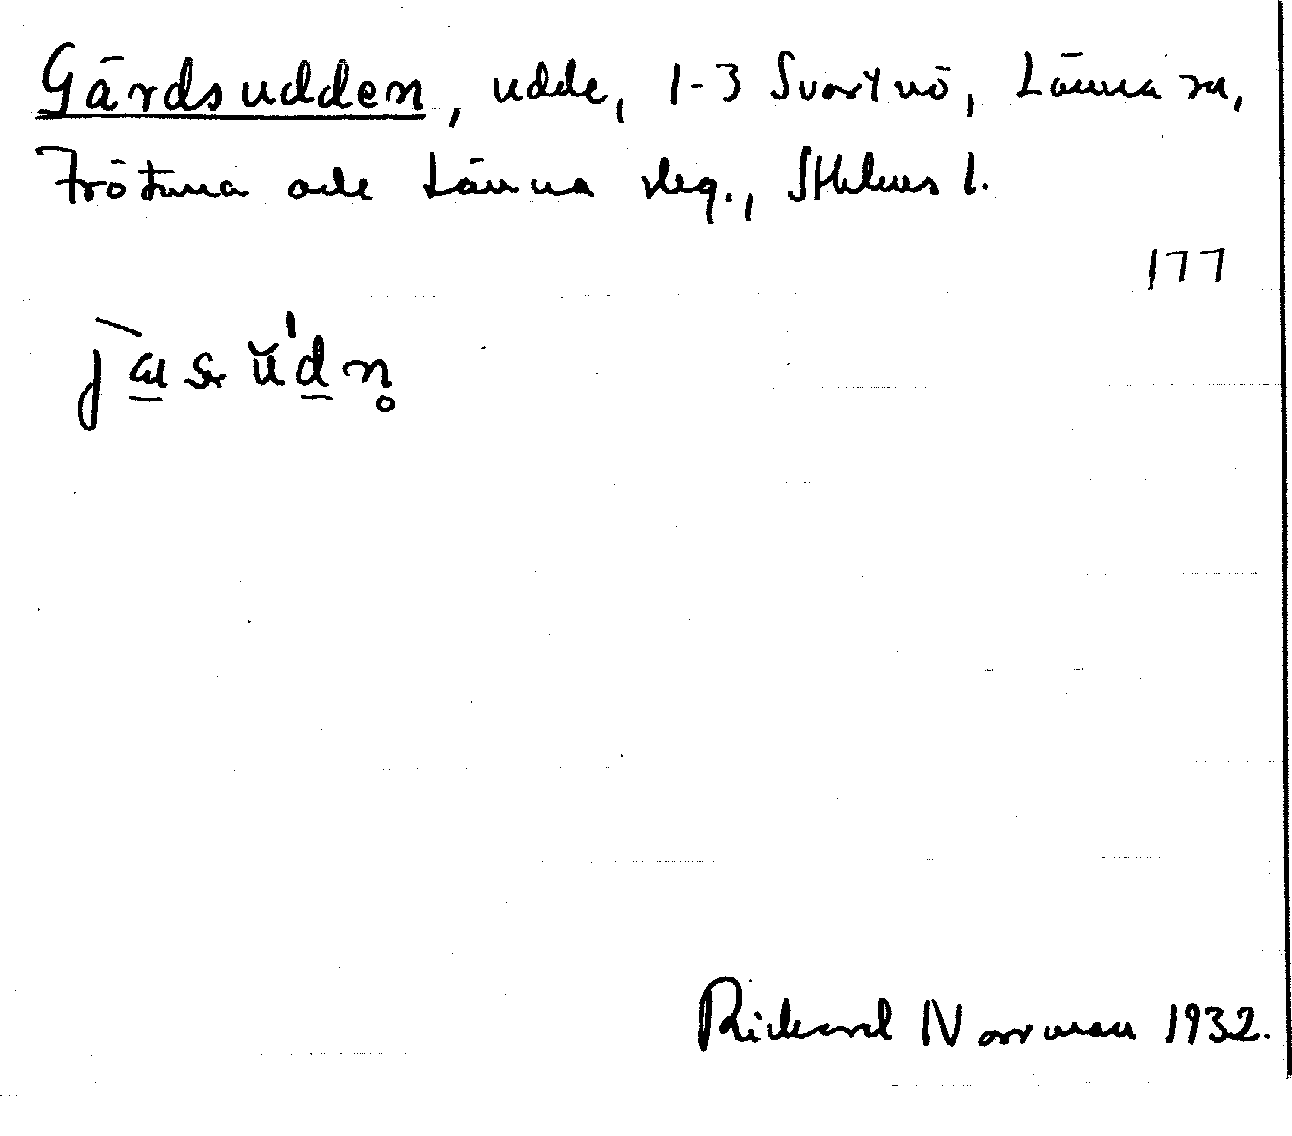 Gärdsudden, udde, 1-3 Svartnö, Länna sn,
Frötuna och Länna skg., Sthlms l.
177
Rickard Norrman 1932.